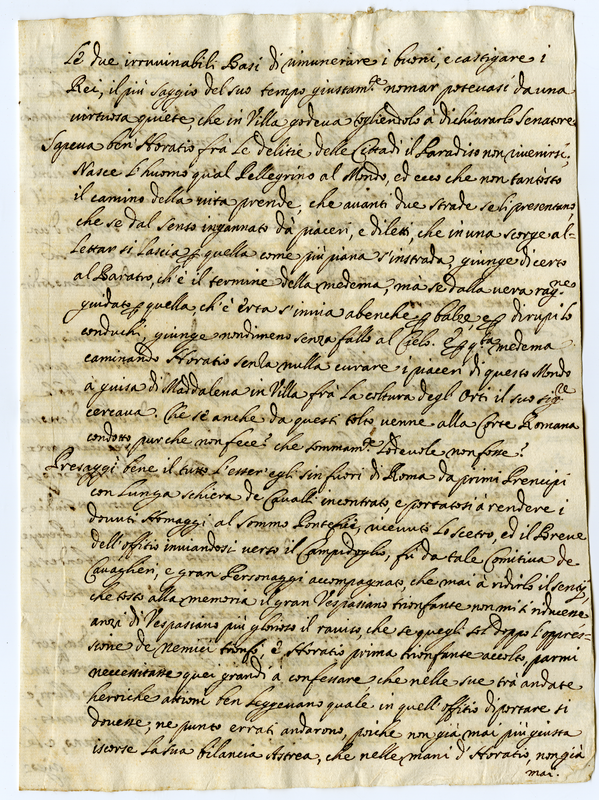 Le due irruuinabili Basi di rimunerare i buoni, e castigare i
Rei, il più saggio del suo tempo giustam.te nomar poteuasi da una
uirtuosa quiete, che in Villa godeua togliendolo à dichiararlo Senatore
Sapeua ben' Horatio frà le delitie delle Città di il Paradiso non rinuenirsi,
Nasce l'huomo qual Pellegrino al Mondo, ed ecco che non tantosto
il camino della uita prende, che auanti due strade se li presentano,
che se dal senso ingannato da piaceri, e diletti, che in una scorge al-
lettar si lascia p quella come più piana s'instrada, giunge di certo
al Baratro, ch'è il termine della medema, ma se dalla uera rag.ne
guidato p quella, ch'è erta s'inuia abenche p balze, e p dirupi lo
conduchi, giunge nondimeno senza fallo al Cielo. E p q.sta medema
caminando Horatio senza nulla curare i piaceri di questo Mondo
à guisa di Maddalena in Villa frà la coltura degli Orti il suo
cercaua. Che se anche da questi tolto uenne alla Corte Romana
condotto, purche non fece? che sommam.te lodeuole non fosse?
Presaggì bene il tutto l'esser' egli sin fuori di Roma da primi Prencipi
con lunga schiera de Caualli incontrato, e portatosi à rendere i
douuti Homaggi al Sommo Pontefice, riceuuti lo Scetro, ed il Breue
dell'offitio inuiandosi uerso il Campidoglio, fù da tale Comitiua de
Cauaglieri, e gran Personaggi accompagnato, che mai à ridirlo il sentij,
che tosto alla memoria il gran Vespasiano trionfante non mi si riducesse
anzi di Vespasiano più glorioso il rauiso, che se quegli sol doppo l'oppres-
sione de nemici trionfò, è Horatio prima trionfante accolto, parmi
neccessitasse quei grandi à confessare che nelle sue trà andate
heroiche attioni ben leggeuano quale in quell'offitio diportare si
douesse; ne punto errati andarono, poiche non già mai più giusta
iscorse la sua bilancia Astrea, che nelle mani d'Horatio, non già
mai